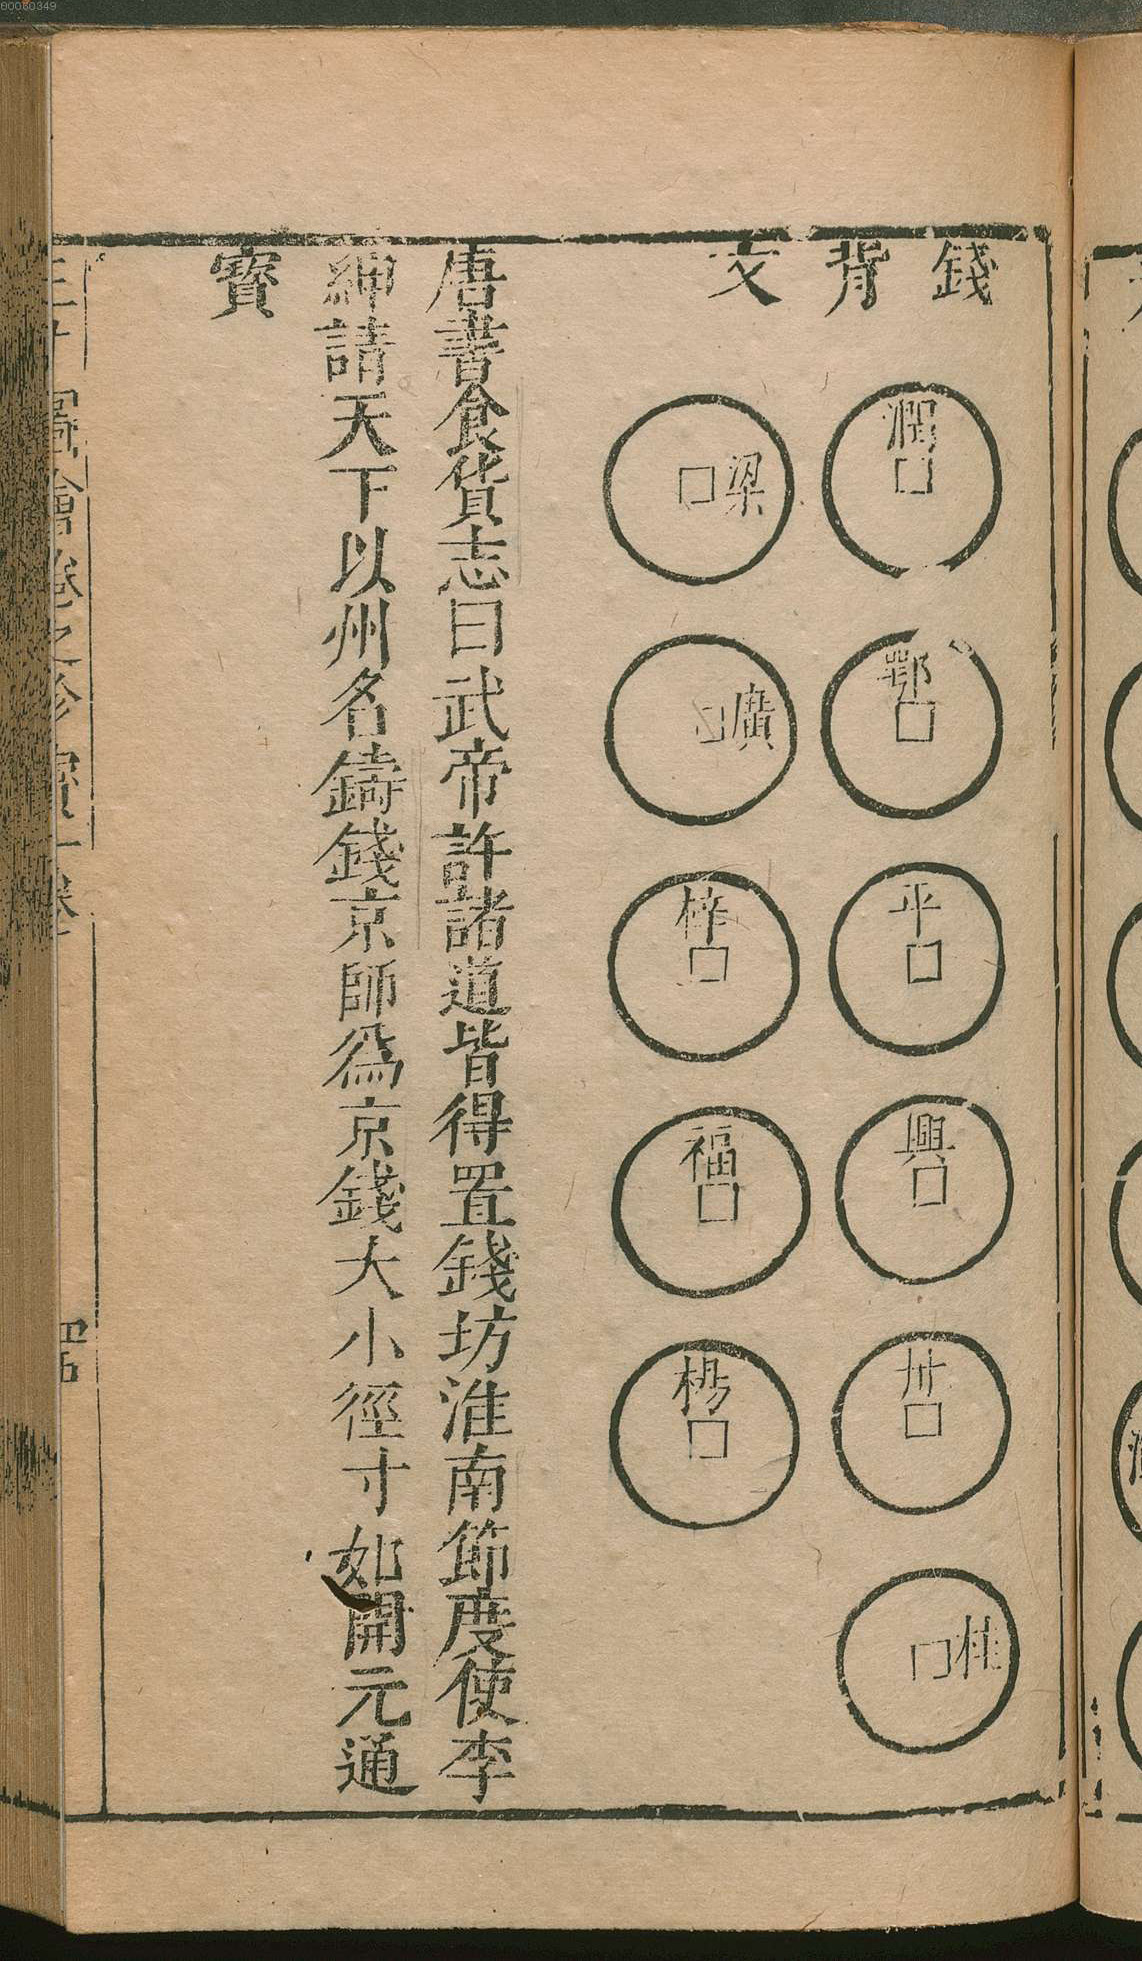 錢背文
潤
鄂
平
興
丹
桂
梁
廣
梓
福
楊
唐書食貨志曰武帝許諸道皆得置錢坊淮南節度使李
紳請天下以州名鑄錢京師爲京錢大小徑寸如開元通
寳
00060349